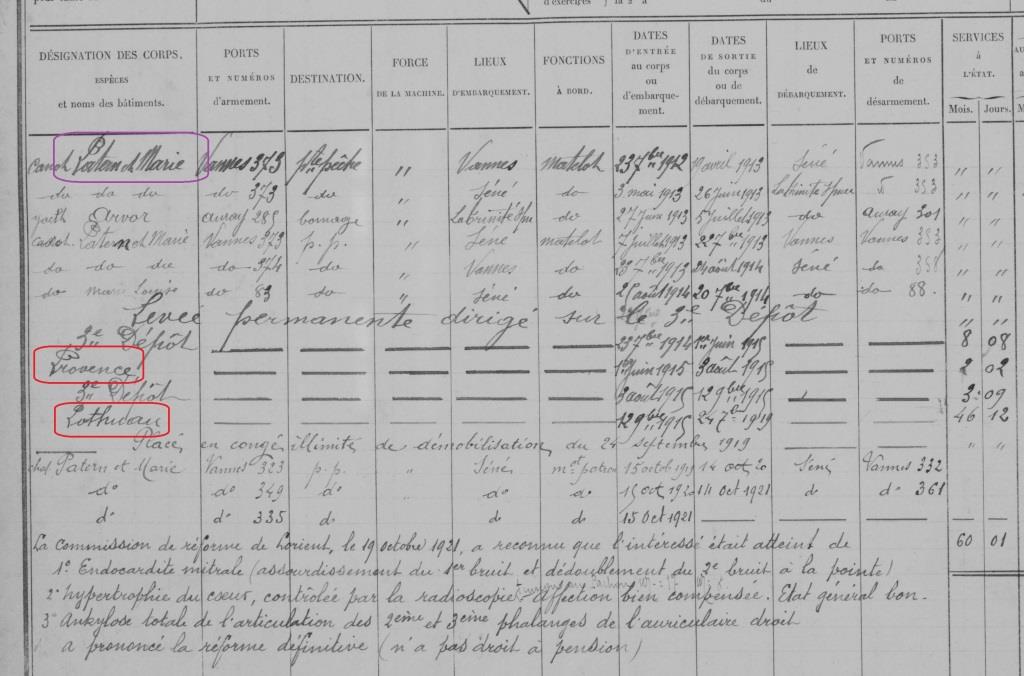 d'exercices
DÉSIGNATION DES CORPS, ESPÈCES et noms des bâtiments. PORTS ET NUMÉROS d'armement. DESTINATION. FORCE DE LA MACHINE. LIEUX D'EMBARQUEMENT. FONCTIONS À BORD. DATES D'ENTRÉE au corps ou d'embarquement. DATES DE SORTIE du corps ou de débarquement. LIEUX de DÉBARQUEMENT. PORTS ET NUMÉROS de désarmement. SERVICES à L'ÉTAT. Mois. Jours.
Canot Patern et Marie Vannes 373 pte pêche " Vannes matelot 23 7bre 1912 avril 1913 Séné Vannes 353 " "
do do do do 373 do " Séné do 3 mai 1913 26 juin 1913 353 " "
Arvor auray 285 bornage " do 27 juin 1913 5 juillet 1913 do auray 301 " "
canot Patern et Marie Vannes 373 p.p. " Séné matelot 7 juillet 1913 22 7bre 1913 Vannes Vannes 353 " "
do do do do 374 do " Vannes do 23 7bre 1913 24 août 1914 Séné do 358 " "
do Marie Louise do 83 do " Séné do 25 août 1914 20 7bre 1914 do do 88. " "
Levée permanente dirigé sur le 3e Dépôt " "
3e Dépôt 23 7bre 1914 1er juin 1915 8 08
Provence 1er juin 1915 3 août 1915 2 02
3e Dépôt 3 août 1915 12 9bre 1915 3 09
Lothuau 12 9bre 1915 24 7bre 1919 46 12
Placé en congé illimité de démobilisation du 24 septembre 1919 " "
Patern et Marie Vannes 323 p.p. " Séné mot patron 15 octob 1919 14 oct 20 Séné Vannes 332
do do 349 do " do do 15 oct 1920 14 oct 1921 do do 361
do do 335 do do do 15 Oct 1921
La Commission de réforme de Lorient, le 19 octobre 1921, a reconnu que l'intéressé était atteint de 60 01
1° Endocardite mitrale (assourdissement du 1er bruit et dédoublement du 2e bruit à la pointe)
2° hypertrophie du cœur, contrôlée par la radioscopie affection bien compensée. Etat général bon.
3° Ankylose totale de l'articulation des 2ème et 3ème phalanges de l'auriculaire droit
a prononcé la réforme définitive (n'a pas droit à pension)